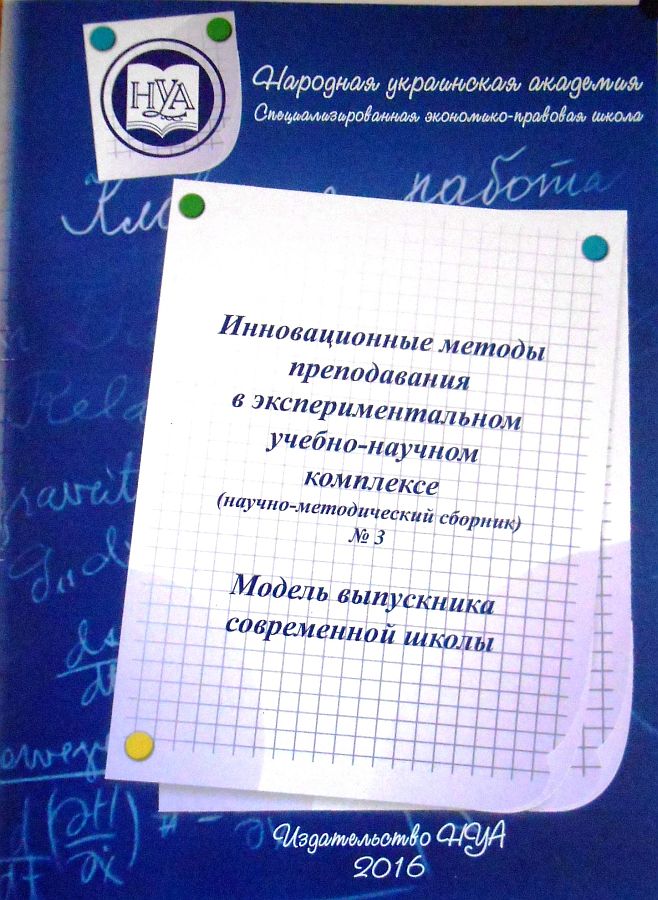 НУА
Народная украинская академия
Специализированная экономико-правовая школа
работа
Инновационные методы
преподавания
в экспериментальном
учебно-научном
комплексе
(научно-методический сборник)
№ 3
Модель выпускника
современной школы
Издательство НУА
2016